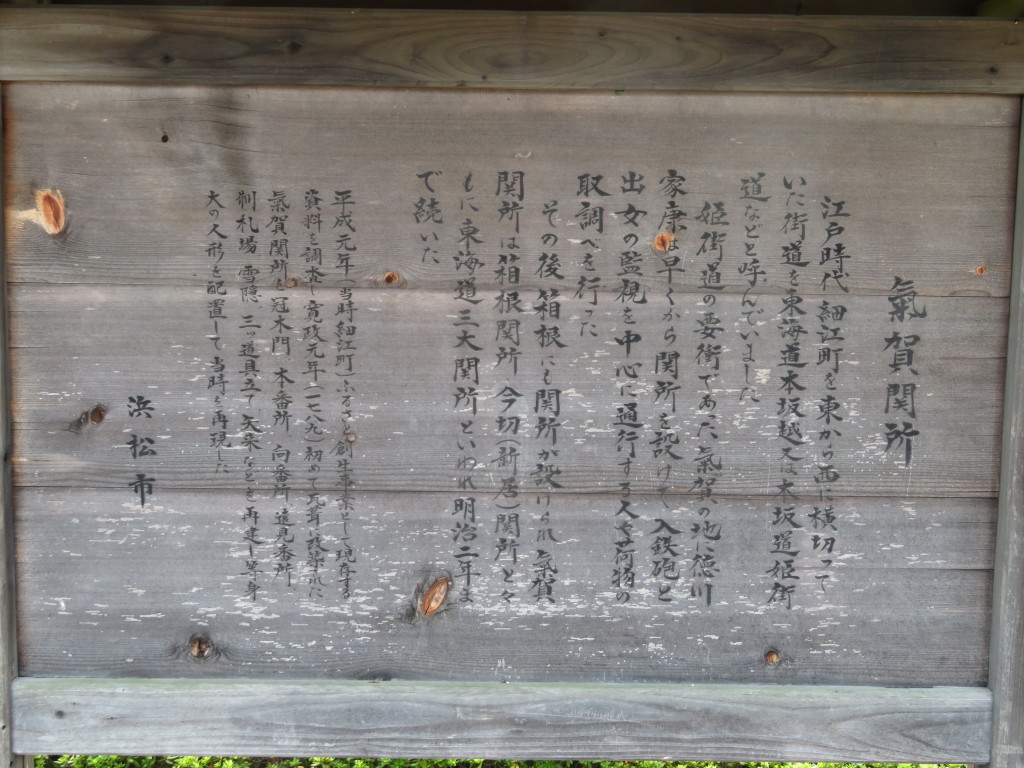 氣賀関所
江戸時代 細江町を東から西に横切って
いた街道を東海道本坂越又は本坂道姫街
道などと呼んでいました
姫街道の要衝であった氣賀の地に徳川
家康は早くから関所を設けて入鉄砲と
出女の監視を中心に通行する人や荷物の
取調べを行った
その後箱根にも関所が設けられ氣賀
関所は箱根関所 今切(新居)関所とと
もに東海道三大関所といわれ明治二年ま
で続いた
平成元年(当時細江町)ふるさと創生事業として現存する
資料を調査し寛政元年(一七八九)初めて瓦葺に改築された
氣賀関所を冠木門 本番所 向番所 遠見番所
制札場 雪隠 三ツ道具立て 矢来などを再建し等身
大の人形を配置して当時を再現した
浜松市